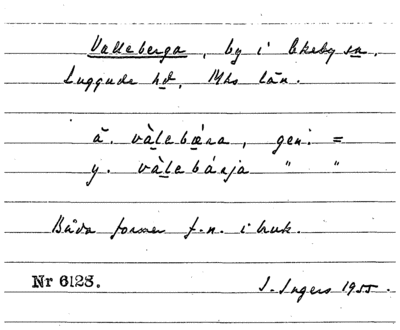 Valleberga, by i Ekeby sn.
Luggude hd, Mhs län.
ä. vàlebæ̀ra, gen. =
y. vàlebánja " "
Båda former f.n. i bruk.
Nr 6128. I. Ingers 1955.